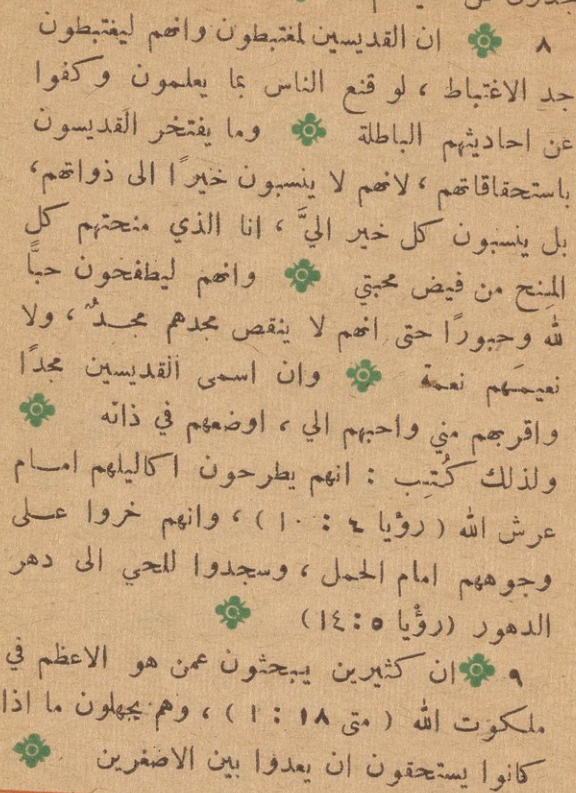 ٨ ان القديسين لمغتبطون وانهم ليغتبطون
جد الاغتباط ، لو قنع الناس بما يعلمون وكفوا
عن احاديثهم الباطلة وما يفتخر القديسون
باستحقاقاتهم ، لانهم لا ينسبون خيرًا الى ذواتهم ،
بل ينسبون كل خير اليَّ ، انا الذي منحتهم كل
المِنح من فيض محبتي وانهم ليطفحون حبًّا
لله وحبورًا حتى انهم لا ينقص مجدهم مجدٌ ، ولا
نعيمَهم نعمة وان اسمى القديسين مجدًا
واقربهم مني واحبهم الي ، اوضعهم في ذاته
ولذلك كُتِب : انهم يطرحون اكاليلهم امام
عرش الله ( رؤيا ٤ : ١٠ ) ، وانهم خروا على
وجوههم امام الحمل ، وسجدوا للحي الى دهر
الدهور (رؤْيا ٥ : ١٤)
٩ ان كثيرين يبحثون عمن هو الاعظم في
ملكوت الله ( متى ١٨ : ١ ) ، وهم يجهلون ما اذا
كانوا يستحقون ان يعدوا بين الاصغرين